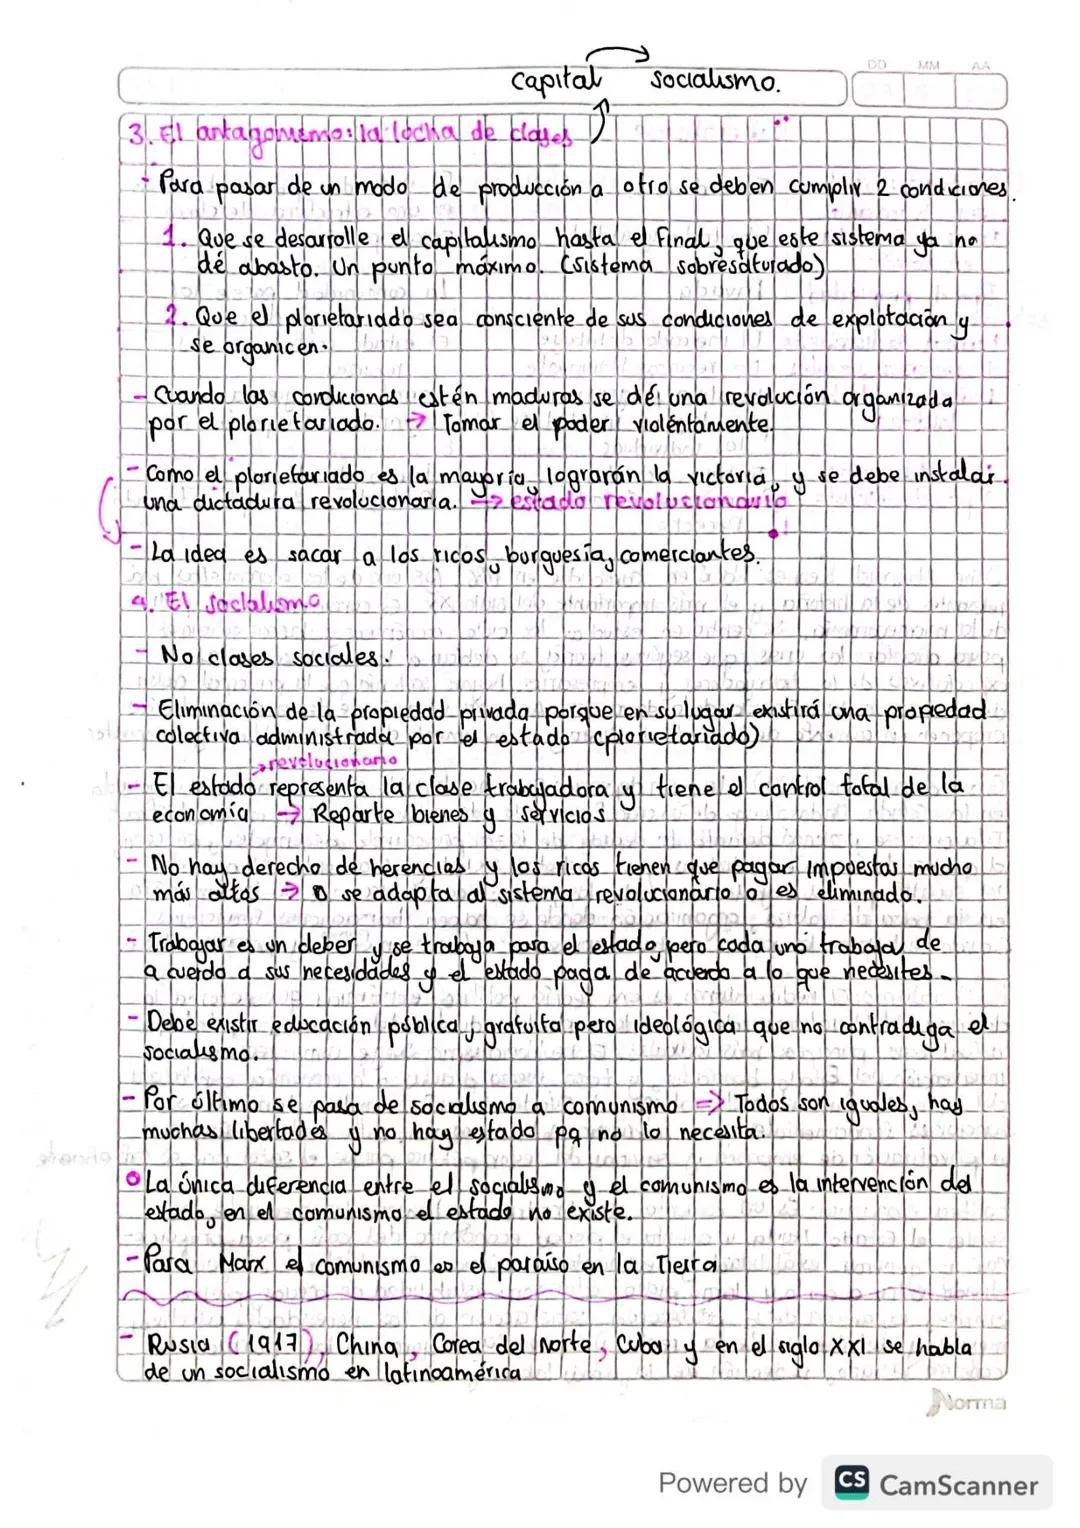 capital → socialismo.
DD MM AA
3. El antagonismo: la lucha de clases
- Para pasar de un modo de producción a otro se deben cumplir 2 condiciones.
1. Que se desarrolle el capitalismo hasta el final, que este sistema ya no
dé abasto. Un punto máximo. (sistema sobresaturado)
2. Que el plorietariado sea consciente de sus condiciones de explotación y
se organicen.
- Cuando las condiciones estén maduras se dé una revolución organizada
por el plorietariado. → Tomar el poder violéntamente.
- Como el plorietariado es la mayoría, lograrán la victoria, y se debe instalar
una dictadura revolucionaria. → estado revolucionario
- La idea es sacar a los ricos, burguesía, comerciantes.
4. El socialismo
- No clases sociales.
- Eliminación de la propiedad privada porque en su lugar existirá una propiedad
colectiva administrada por el estado (plorietariado)
→ revolucionario
- El estado representa la clase trabajadora y tiene el control total de la
economía → Reparte bienes y servicios
- No hay derecho de herencias y los ricos tienen que pagar impuestos mucho
más altos → o se adapta al sistema revolucionario o es eliminado.
- Trabajar es un deber y se trabaja para el estado, pero cada uno trabaja de
acuerdo a sus necesidades y el estado paga de acuerdo a lo que necesites.
- Debe existir educación pública, gratuita pero ideológica que no contradiga el
socialismo.
- Por último se pasa de socialismo a comunismo ⇒ Todos son iguales, hay
muchas libertades y no hay estado pq no lo necesita.
• La única diferencia entre el socialismo y el comunismo es la intervención del
estado, en el comunismo el estado no existe.
- Para Marx el comunismo es el paraíso en la Tierra
- Rusia (1917), China, Corea del Norte, Cuba y en el siglo XXI se habla
de un socialismo en latinoamérica
Norma
Powered by CS CamScanner